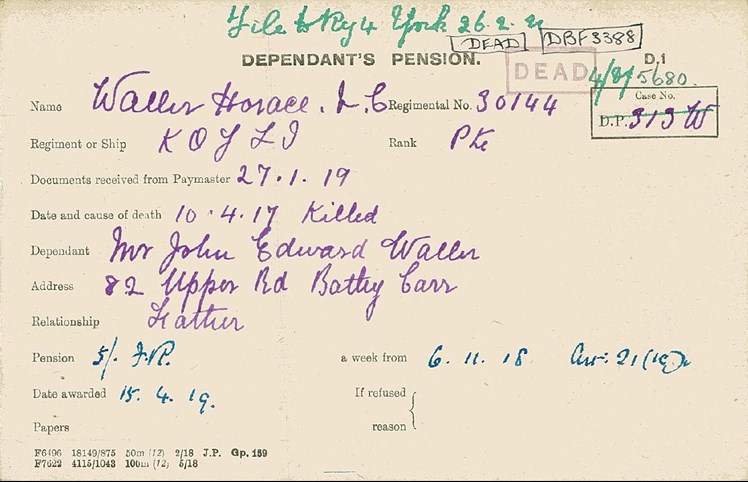 File to Ry 4 York 26.2.21
DEAD DBF3388
DEPENDANT'S PENSION. D,1
DEAD 4/8/5680
Name Waller Horace. V.C Regimental No. 30144
Case No.
D.P. 313 W
Regiment or Ship K O Y L I Rank Pte
Documents received from Paymaster 27.1.19
Date and cause of death 10.4.17 Killed
Dependant Mr John Edward Waller
Address 82 Upper Rd Batley Carr
Relationship Father
Pension 5/. F.R. a week from 6.11.18 21(19)
Date awarded 15.4.19. If refused
Papers reason
F6496 18149/875 50m (12) 2/18 J.P. Gp. 159
F7622 4115/1043 100m (12) 5/18